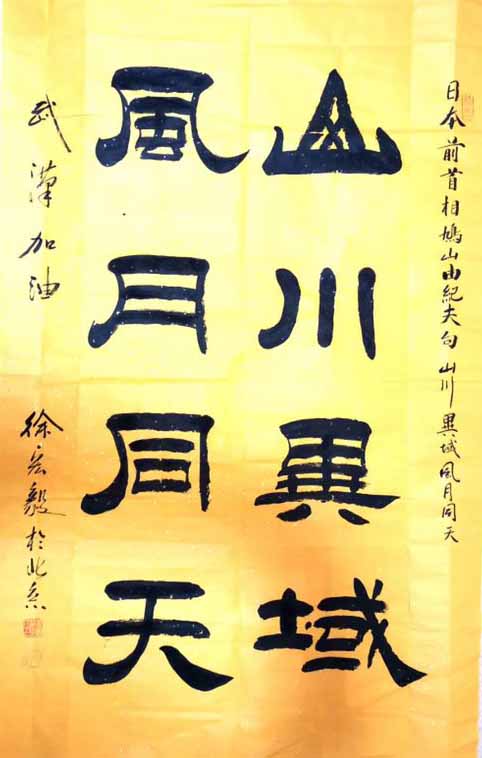 日本前首相鳩山由紀夫句 山川異域風月同天
山川異域
風月同天
武漢加油
徐宏毅於北京